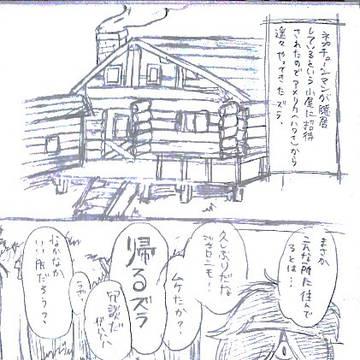 ネガチューンマンが隠居
しているという小屋に招待
されたのでアメリカ(ハワイ)から
遥々やってきたズラ。
まさか
こんな所に住んで
るとは…
久しぶりだな
ピエロモ…!
ムケたか?
帰るズラ
冗談だ
なかなか
いい所だろう?